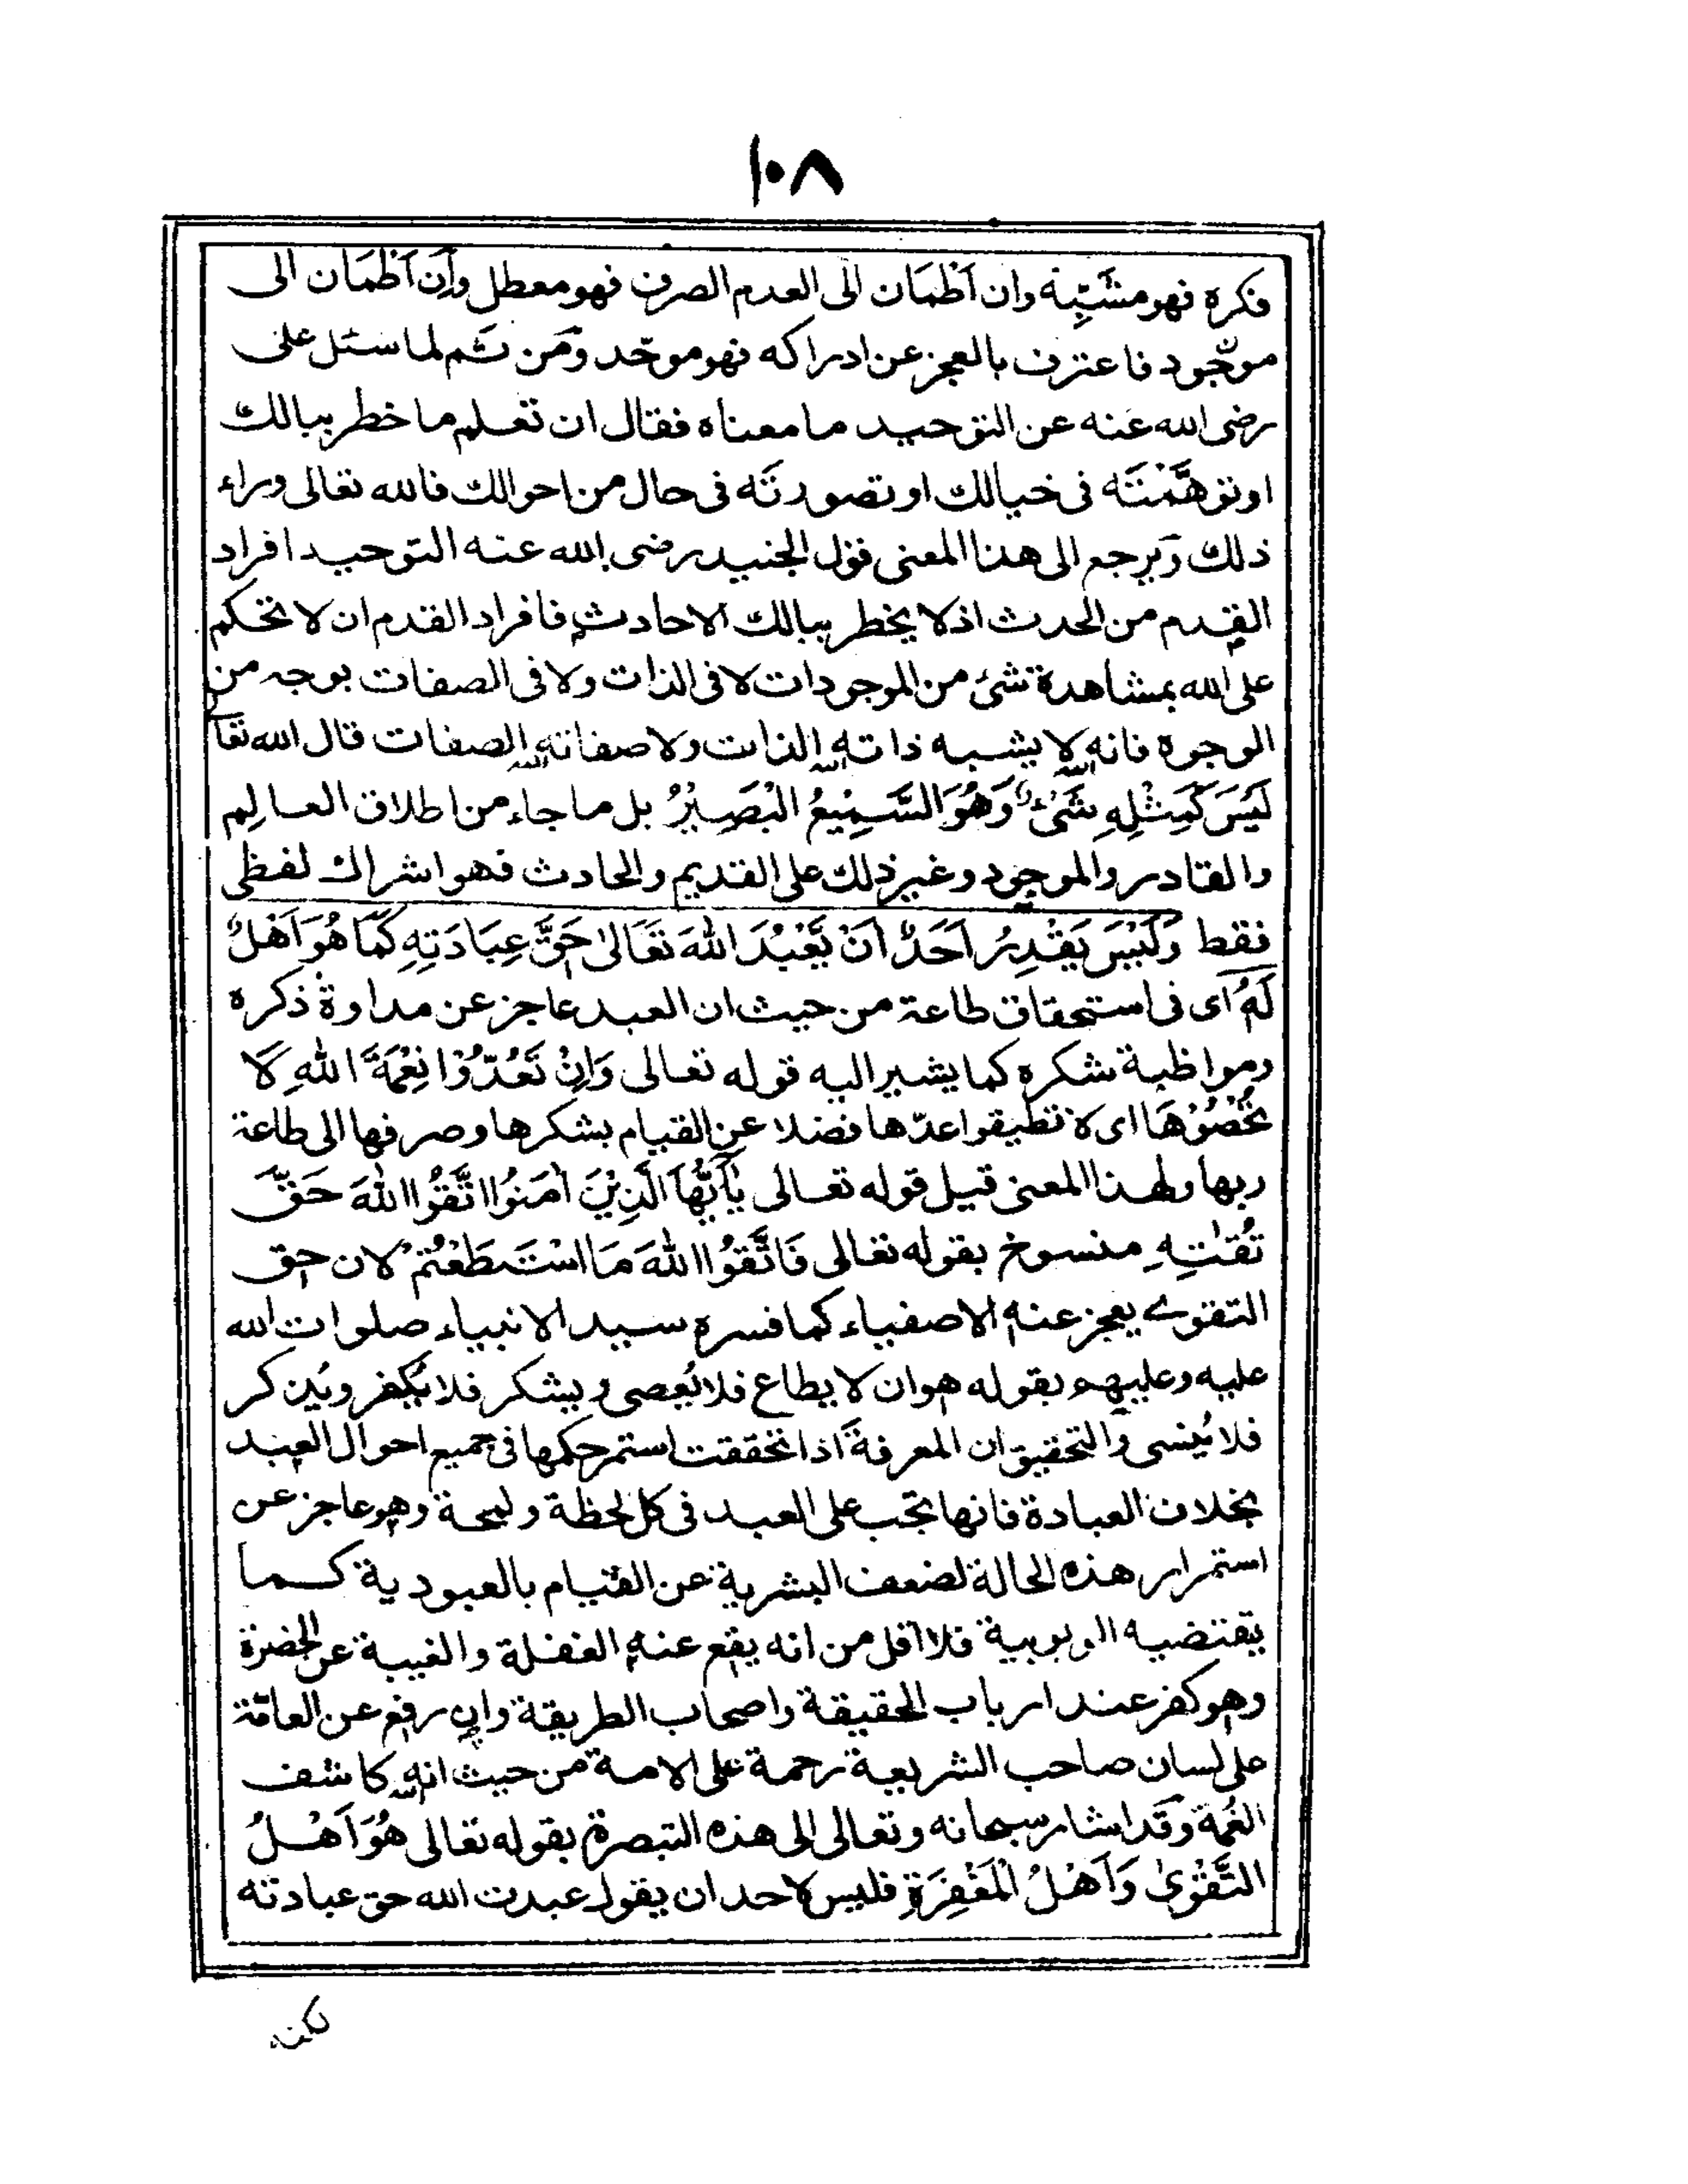 ١٠٨
فكره فهو مشبّهة وان اَظْمَان الى العدم الصرف فهو معطل وَاِن اَظْمَان الى
موجُود فاعترف بالعجز عن ادراكه فهو موحّد وَمَن ثَم لما سئل على
رضى الله عَنه عن التوحيد ما معناه فقال ان تعلم ما خطر ببالك
او توهَّمْتَه فى خيالك او تصورتَه فى حال من احوالك فالله تعالى وراء
ذلك وَيرجع الى هذا المعنى قول الجنيد رضى الله عنه التوحيد افراد
القِدم من الحدث اذ لا يخطر ببالك الا حادث فافراد القدم ان لا تحكم
على الله بمشاهدة شئ من الموجودات لا فى الذات ولا فى الصفات بوجه من
الوجوه فانه لا يشبه ذاته الذات ولا صفاته الصفات قال الله تعا
لَيْسَ كَمِثْلِهٖ شَئٌ وَهُوَ السَّمِيْعُ الْبَصِيْرُ بل ما جاء من اطلاق العالِم
والقادر والموجود وغير ذلك على القديم والحادث فهو اشراك لفظى
فقط وَلَيْسَ يَقْدِرُ اَحَدٌ اَنْ يَّعْبُدَ اللهَ تَعَالىٰ حَقَّ عِبَادَتِهٖ كَمَا هُوَ اَهْلٌ
لَهٗ اى فى استحقاق طاعة من حيث ان العبد عاجز عن مداوة ذكره
ومواظبة شكره كما يشير اليه قوله تعالى وَاِنْ تَعُدُّوْا نِعْمَةَ اللهِ لَا
تُحْصُوْهَا اى لا تطيقوا عدّها فضلا عن القيام بشكرها وصرفها الى طاعة
ربها ولهذا المعنى قيل قوله تعالى يٰاَيُّهَا الَّذِيْنَ اٰمَنُوا اتَّقُوا اللهَ حَقَّ
تُقٰتِهٖ منسوخ بقوله تعالى فَاتَّقُوا اللهَ مَا اسْتَطَعْتُمْ لان حق
التقوے يعجز عنه الاصفياء كما فسره سيد الانبياء صلوات الله
عليه وعليهم بقوله هو ان لا يطاع فلا يُعصى ويشكر فلا يُكفر ويُذكر
فلا يُنسى وَالتحقيق ان المعرفة اذا تحققت استمر حكمها فى جميع احوال العبد
بخلاف العبادة فانها تجب على العبد فى كل لحظة ولمحة وهو عاجز عن
استمرار هذه الحالة لضعف البشرية عن القيام بالعبودية كما
يقتضيه الوبوبية فلا اقل من انه يقع عنه الغفلة والغيبة عن الحضرة
وهو كفر عند ارباب الحقيقة واصحاب الطريقة وان رفع عن العامّة
على لسان صاحب الشريعة رحمة على الامة من حيث انه كاشف
الغُمة وقَد اشار سبحانه وتعالى الى هذه التبصرة بقوله تعالى هُوَ اَهْلُ
التَّقْوٰى وَاَهْلُ الْمَغْفِرَةِ فليس لاحد ان يقول عبدت الله حق عبادته
لكنه